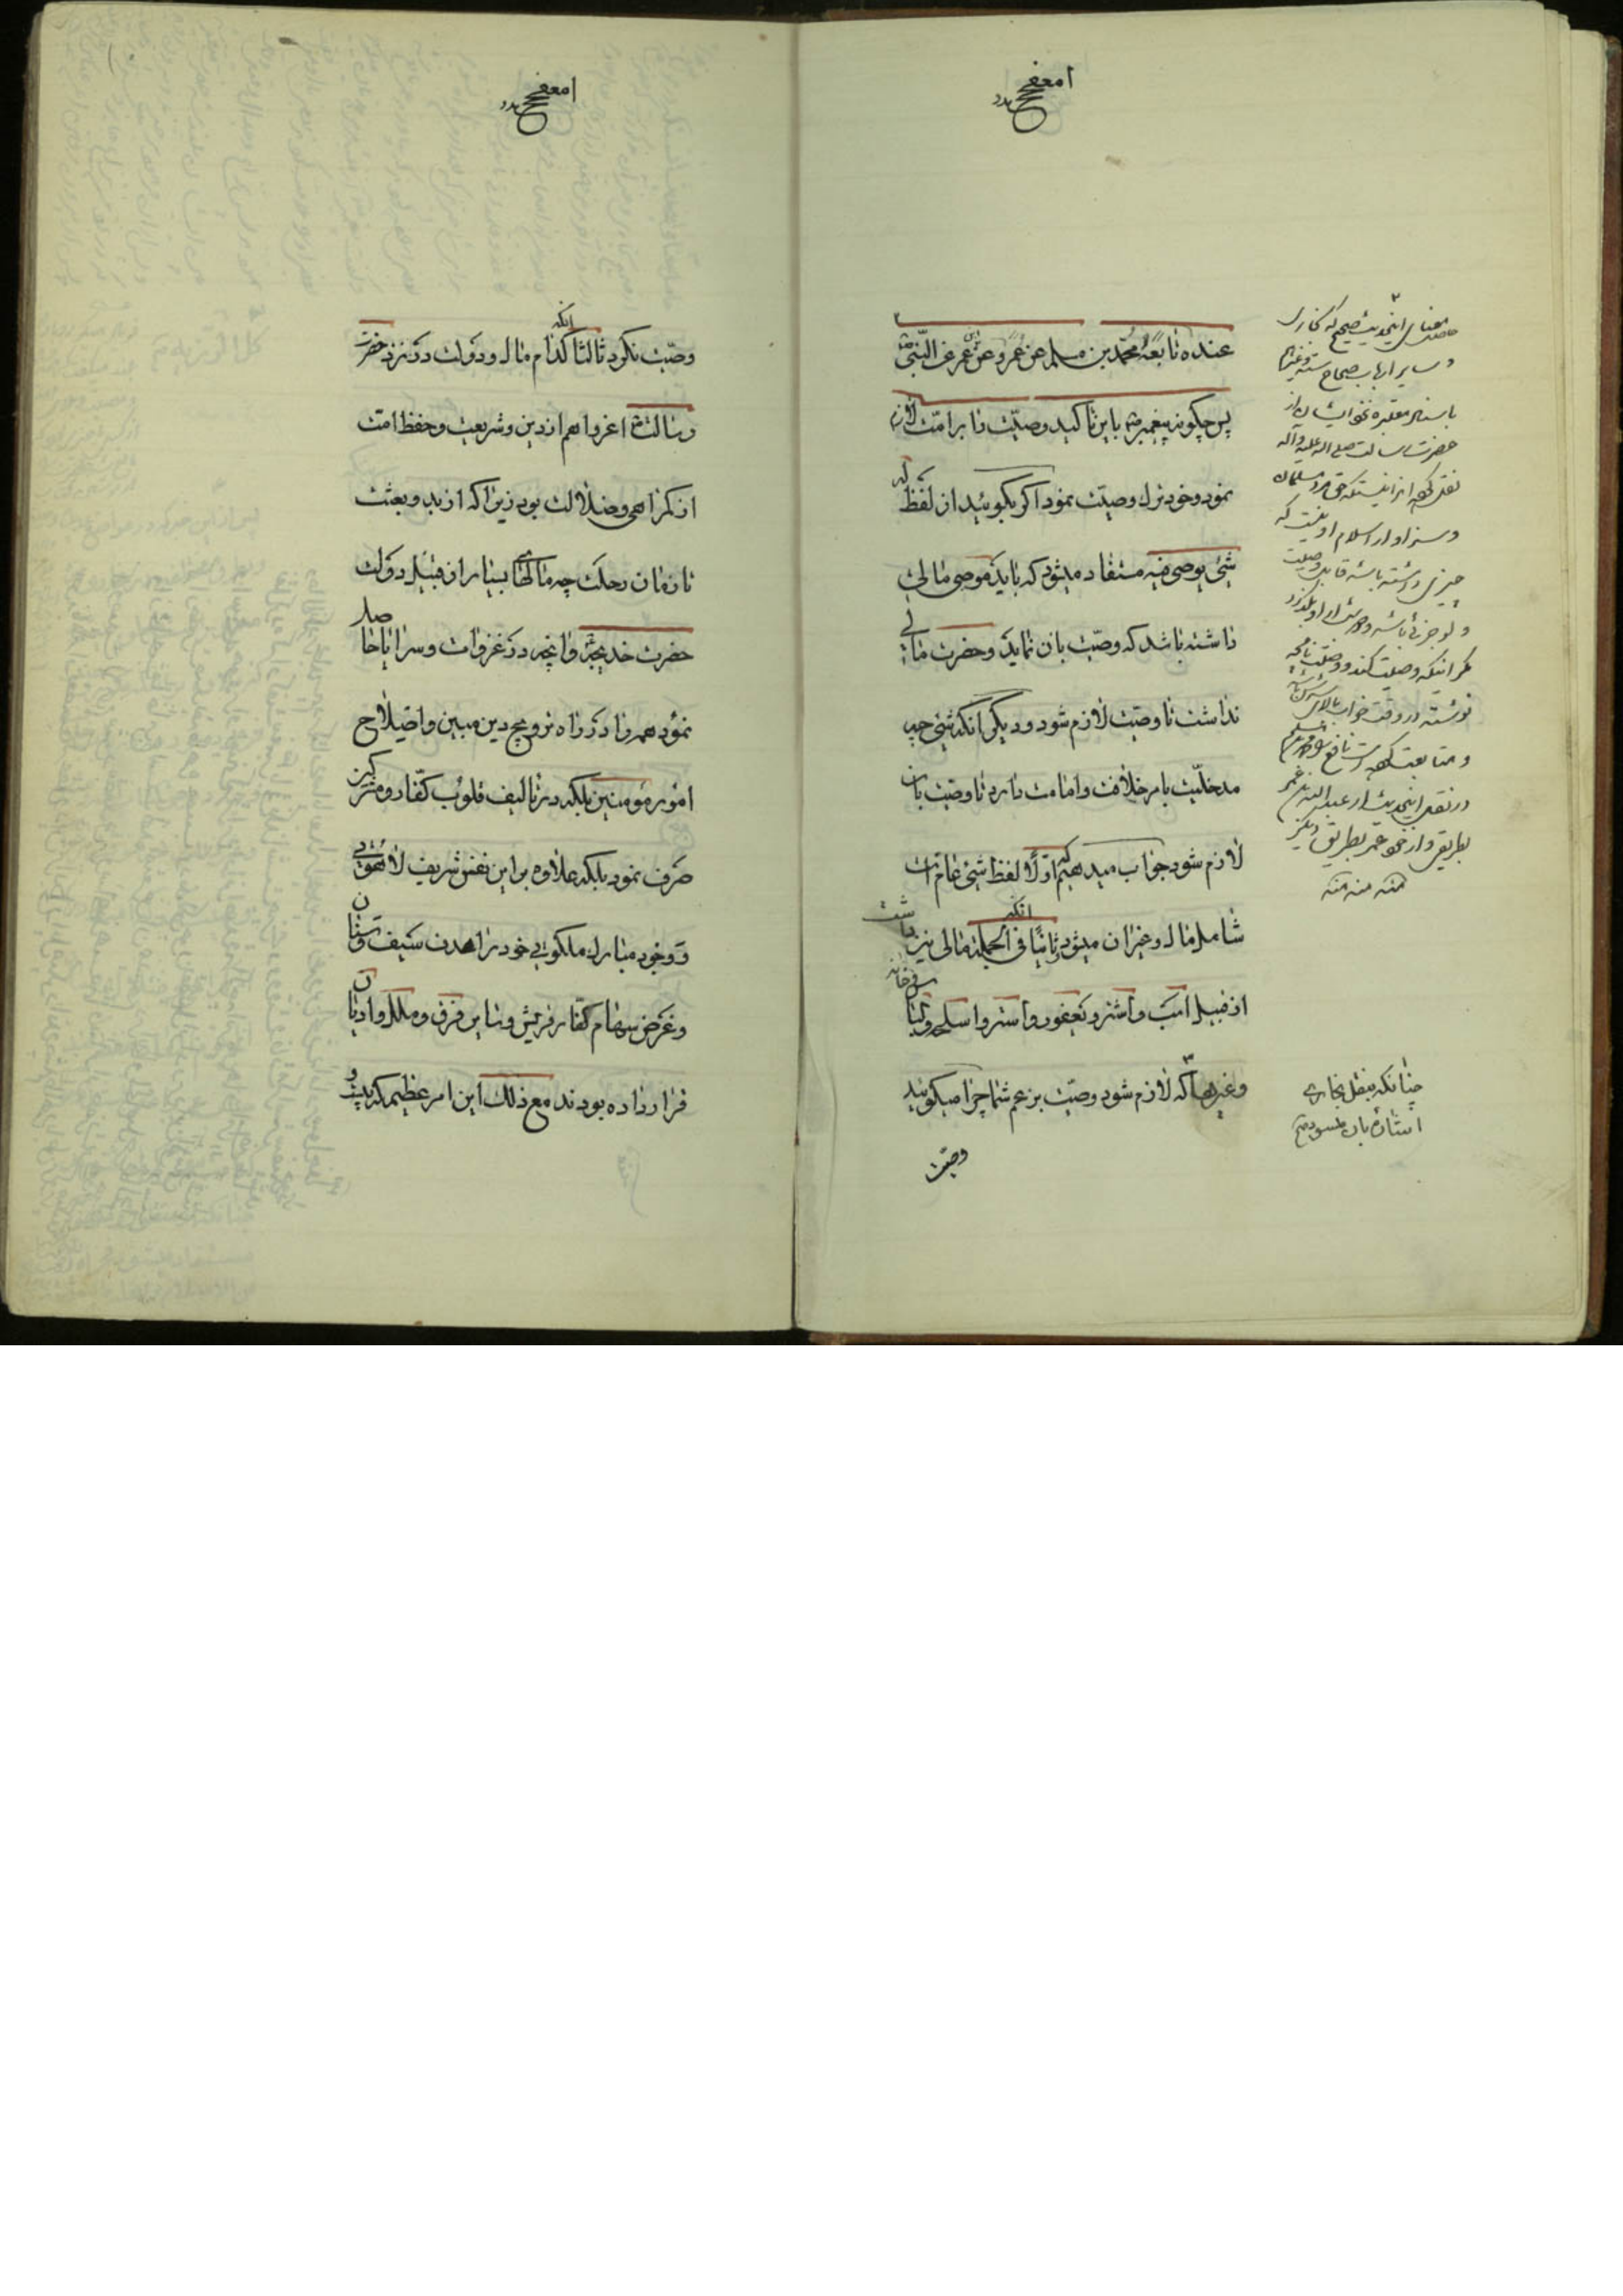 عنده تابعه محمد بن مسلم عن عمرو عن ابن عمر عن النبی ص
پس چگونه پیغمبر ص باین تاکید وصیت را بر امت لازم
نمود و خود ترک وصیت نمود اگر بگوئید از لفظ
شیٔ یوصی فیه مستفاد میشود که باید موصی مالی
داشته باشد که وصیت بان نماید و حضرت مالی
نداشت تا وصیت لازم شود و دیگر آنکه شیٔ چه
مدخلیت بامر خلافت و امامت دارد تا وصیت بان
لازم شود جواب میدهیم که اولا لفظ شیٔ عام است
شامل مال و غیر ان میشود و ثانیا انکه فی الجمله مالی نیز داشت
از قبیل اسب و اشتر و یعفور و استر و اسلحه و
و غیرها که لازم شود وصیت بزعم شما چرا میگوئید
وصیت
حاصل معنای اینحدیث صحیح که بخاری
و سایر ارباب صحاح سته و غیرها
باسناد معتبره خود ایشان از
حضرت رسالت صلی الله علیه و آله
نقل کرده‌اند اینستکه حق مرد مسلمان
و سزاوار اسلام او نیست که
چیزی داشته باشد قابل وصیت
مگر اینکه وصیت کند و وصیت نامچه
نوشته در وقت خواب بالای سرش باشد
در نقل اینحدیث از عبد الله بن عمر
بطریقی و از عمرو بطریق دیگر
منه منه منه
چنانکه بنقل بخاری
اشاره بان میشود
وصیت نکرد ثالثا انکه کدام مال و دولت در نزد حضرت
رسالت ص اعز و اهم از دین و شریعت و حفظ امت
از گمراهی و ضلالت بود زیرا که از بدو بعثت
تا زمان رحلت چه مالهای بسیار از قبیل دولت
حضرت خدیجه و انچه در غزوات و سرایا حاصل
نمود همه را در راه ترویج دین مبین و اصلاح
امور مؤمنین بلکه در تالیف قلوب کفار و مشرکین
صرف نمود بلکه علاوه بر این نفس شریف لاهوتی
و وجود مبارک ملکوتی خود را هدف سیف و سنان
و غرض سهام کفار قریش و سایر فرق و ملل و ادیان
قرار داده بودند مع ذلک این امر عظیم که